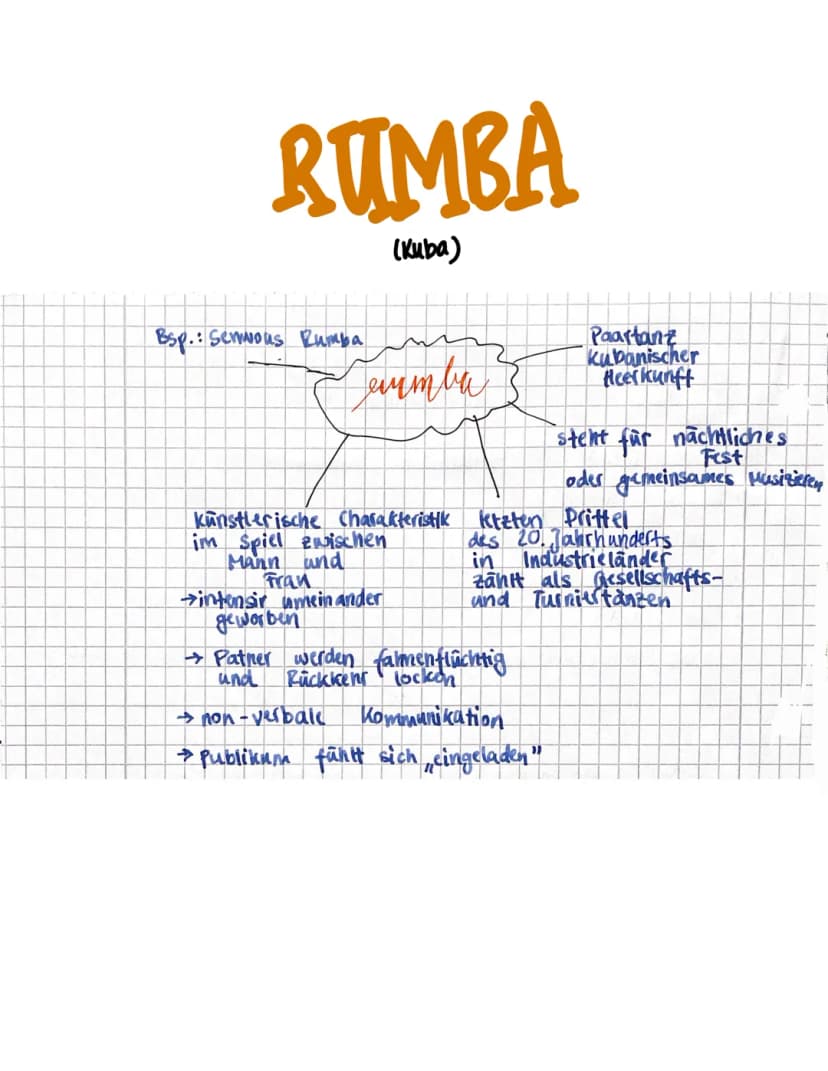 RUMBA
(Kuba)
Bsp.: Rumba
rumba
Paartanz
kubanischer
Heerkunft
steht für nächtliches
Fest
oder gemeinsames Musizieren
Künstlerische Charakteristik
im Spiel zwischen
Mann und
Frau
→intensiv umeinander
geworben
→ Patner werden fahnenflüchtig
und Rückkehr locken
→ non-verbale Kommunikation
→ Publikum fühlt sich „eingeladen"
letzten Drittel
des 20. Jahrhunderts
in Industrieländer
zählt als Gesellschafts-
und Turniertänzen